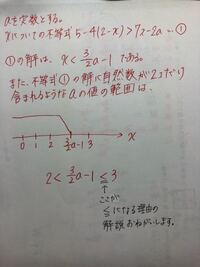 aを実数とする。
xについての不等式 5-4(2-x)>7x-2a…①
①の解は、x<3/2a-1である。
また、不等式①の解に自然数が2つだけ
含まれるようなaの値の範囲は、
0 1 2 3/2a-1 3 x
2<3/2a-1≦3
↑
ここが
≦になる理由の
解説おねがいします。